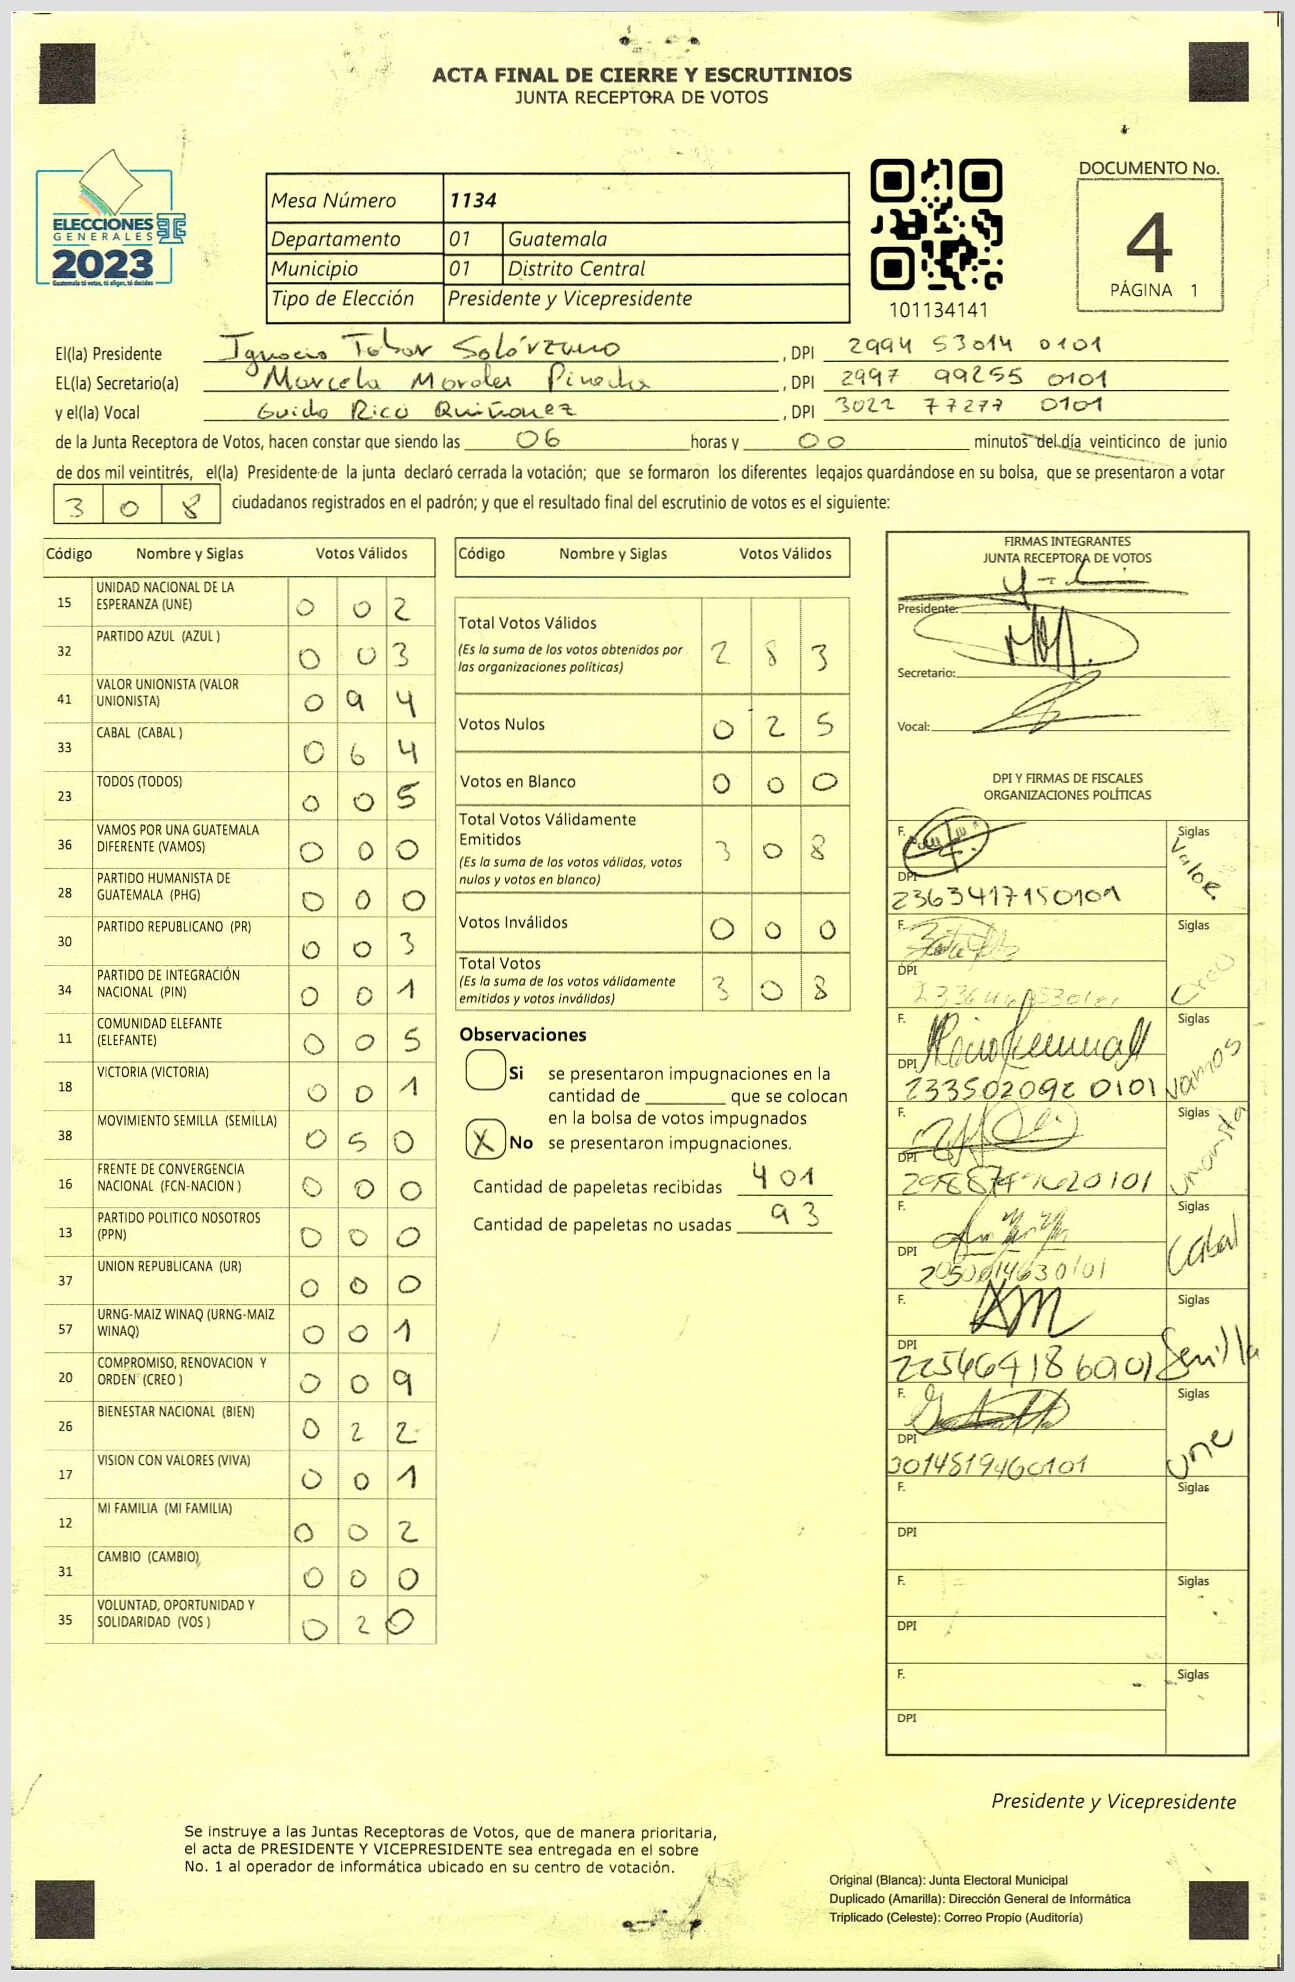 ACTA FINAL DE CIERRE Y ESCRUTINIOS
JUNTA RECEPTORA DE VOTOS
ELECCIONES
GENERALES
2023
Guatemala tú votas, tú eliges, tú decides
Mesa Número 1134
Departamento 01 Guatemala
Municipio 01 Distrito Central
Tipo de Elección Presidente y Vicepresidente
101134141
DOCUMENTO No.
4
PÁGINA 1
El(la) Presidente Ignacio Tobar Solórzano , DPI 2994 53014 0101
EL(la) Secretario(a) Marcela Morales Pineda , DPI 2997 99255 0101
y el(la) Vocal Guido Rico Quiñonez , DPI 3022 77277 0101
de la Junta Receptora de Votos, hacen constar que siendo las 06 horas y 00 minutos del día veinticinco de junio
de dos mil veintitrés, el(la) Presidente de la junta declaró cerrada la votación; que se formaron los diferentes legajos guardándose en su bolsa, que se presentaron a votar
308 ciudadanos registrados en el padrón; y que el resultado final del escrutinio de votos es el siguiente:
Código Nombre y Siglas Votos Válidos
15 UNIDAD NACIONAL DE LA
ESPERANZA (UNE) 0 0 2
32 PARTIDO AZUL (AZUL ) 0 0 3
41 VALOR UNIONISTA (VALOR
UNIONISTA) 0 9 4
33 CABAL (CABAL ) 0 6 4
23 TODOS (TODOS) 0 0 5
36 VAMOS POR UNA GUATEMALA
DIFERENTE (VAMOS) 0 0 0
28 PARTIDO HUMANISTA DE
GUATEMALA (PHG) 0 0 0
30 PARTIDO REPUBLICANO (PR) 0 0 3
34 PARTIDO DE INTEGRACIÓN
NACIONAL (PIN) 0 0 1
11 COMUNIDAD ELEFANTE
(ELEFANTE) 0 0 5
18 VICTORIA (VICTORIA) 0 0 1
38 MOVIMIENTO SEMILLA (SEMILLA) 0 5 0
16 FRENTE DE CONVERGENCIA
NACIONAL (FCN-NACION ) 0 0 0
13 PARTIDO POLITICO NOSOTROS
(PPN) 0 0 0
37 UNION REPUBLICANA (UR) 0 0 0
57 URNG-MAIZ WINAQ (URNG-MAIZ
WINAQ) 0 0 1
20 COMPROMISO, RENOVACION Y
ORDEN (CREO ) 0 0 9
26 BIENESTAR NACIONAL (BIEN) 0 2 2
17 VISION CON VALORES (VIVA) 0 0 1
12 MI FAMILIA (MI FAMILIA) 0 0 2
31 CAMBIO (CAMBIO) 0 0 0
35 VOLUNTAD, OPORTUNIDAD Y
SOLIDARIDAD (VOS ) 0 2 0
Código Nombre y Siglas Votos Válidos
Total Votos Válidos
(Es la suma de los votos obtenidos por
las organizaciones políticas) 2 8 3
Votos Nulos 0 2 5
Votos en Blanco 0 0 0
Total Votos Válidamente
Emitidos
(Es la suma de los votos válidos, votos
nulos y votos en blanco) 3 0 8
Votos Inválidos 0 0 0
Total Votos
(Es la suma de los votos válidamente
emitidos y votos inválidos) 3 0 8
Observaciones
Si se presentaron impugnaciones en la
cantidad de ________ que se colocan
en la bolsa de votos impugnados
X No se presentaron impugnaciones.
Cantidad de papeletas recibidas 401
Cantidad de papeletas no usadas 93
FIRMAS INTEGRANTES
JUNTA RECEPTORA DE VOTOS
Presidente:
Secretario:
Vocal:
DPI Y FIRMAS DE FISCALES
ORGANIZACIONES POLÍTICAS
F. Siglas Valor
DPI 2363417150101
F. Siglas Creo
DPI
F. Siglas Vamos
DPI 233502092 0101
F. Siglas Unionista
DPI
F. Siglas Cabal
DPI 2050614630101
F. Siglas Semilla
DPI
F. Siglas Une
DPI 3014819460101
F. Siglas
DPI
F. Siglas
DPI
F. Siglas
DPI
Presidente y Vicepresidente
Se instruye a las Juntas Receptoras de Votos, que de manera prioritaria,
el acta de PRESIDENTE Y VICEPRESIDENTE sea entregada en el sobre
No. 1 al operador de informática ubicado en su centro de votación.
Original (Blanca): Junta Electoral Municipal
Duplicado (Amarilla): Dirección General de Informática
Triplicado (Celeste): Correo Propio (Auditoría)